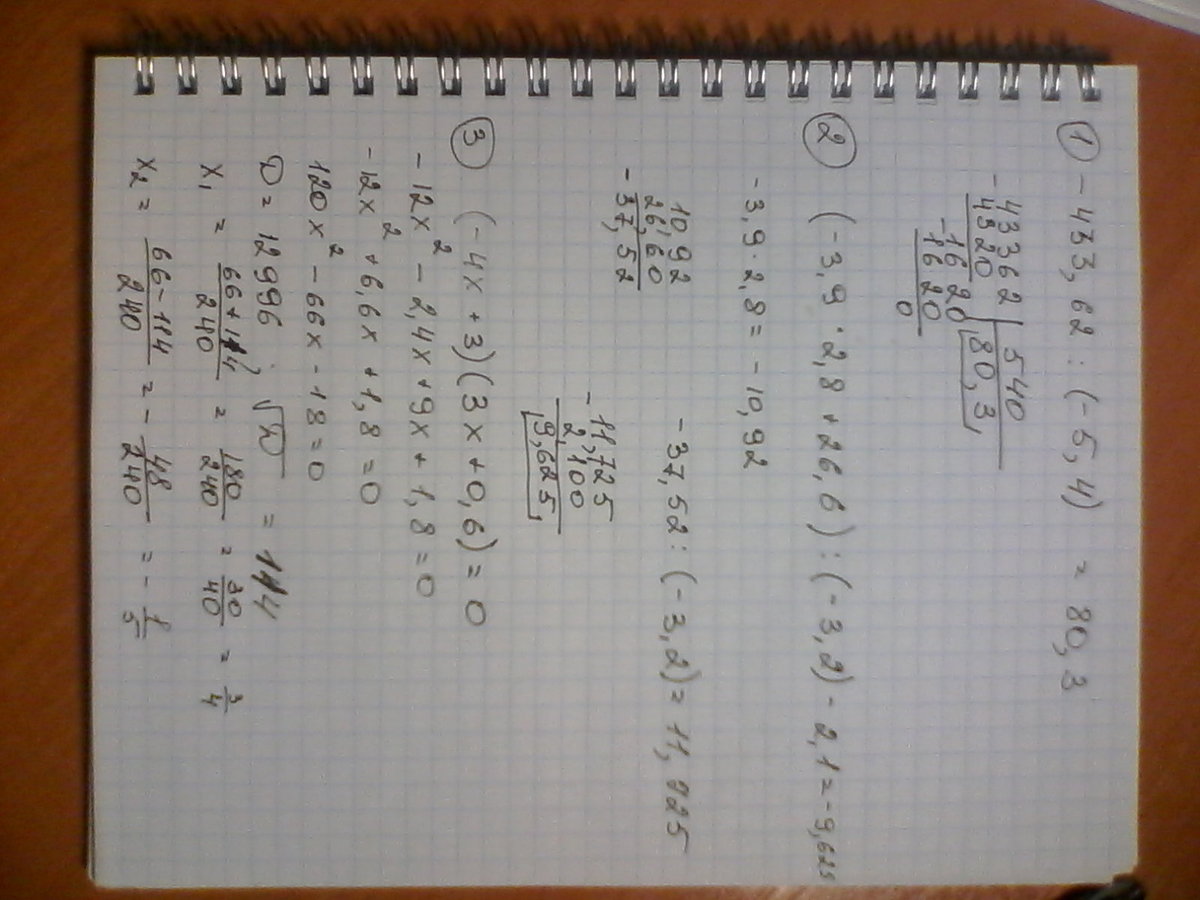 ① - 433,62 : (-5,4) = 80,3
- 43362 | 540
4320 | 80,3
- 1620
1620
0
② (-3,9 · 2,8 + 26,6) : (-3,2) - 2,1 = -9,625
-3,9 · 2,8 = -10,92
1092
26,60
- 37,52
-37,52 : (-3,2) = 11,725
- 11,725
2,100
9,625
③ (-4x + 3)(3x + 0,6) = 0
-12x² - 2,4x + 9x + 1,8 = 0
-12x² + 6,6x + 1,8 = 0
120x² - 66x - 18 = 0
D = 12996; √D = 114
x₁ = (66+114)/240 = 180/240 = 30/40 = 3/4
x₂ = (66-114)/240 = - 48/240 = - 1/5